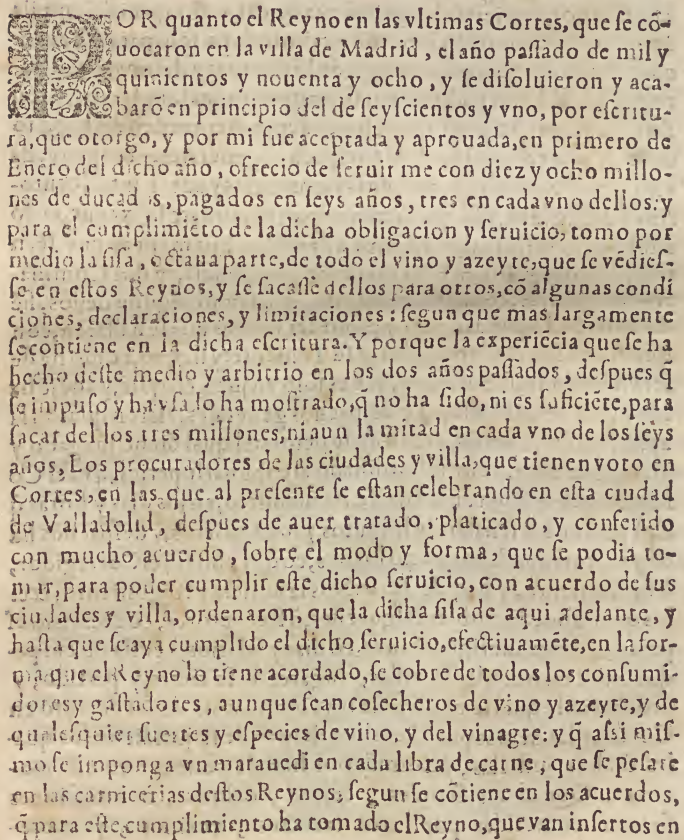 POR quanto el Reyno en las vltimas Cortes, que ſe cõ-
uocaron en la villa de Madrid, el año paſſado de mil y
quinientos y nouenta y ocho, y ſe diſoluieron y aca-
barõ en principio del de ſeyſcientos y vno, por eſcritu-
ra, que otorgo, y por mi fue aceptada y aprouada, en primero de
Enero del dicho año, ofrecio de ſeruir me con diez y ocho millo-
nes de ducados, pagados en ſeys años, tres en cada vno dellos: y
para el cumplimiẽto de la dicha obligacion y ſeruicio, tomo por
medio la ſiſa, octaua parte, de todo el vino y azeyte, que ſe vẽdieſ-
ſe en eſtos Reynos, y ſe ſacaſſe dellos para otros, cõ algunas condi
ciones, declaraciones, y limitaciones: ſegun que mas largamente
ſe contiene en la dicha eſcritura. Y porque la experiẽcia que ſe ha
hecho deſte medio y arbitrio en los dos años paſſados, deſpues q̃
ſe impuſo y ha vſado ha moſtrado, q̃ no ha ſido, ni es ſuficiẽte, para
ſacar del los tres millones, ni aun la mitad en cada vno de los ſeys
años, Los procuradores de las ciudades y villa, que tienen voto en
Cortes, en las que al preſente ſe eſtan celebrando en eſta ciudad
de Valladolid, deſpues de auer tratado, platicado, y conferido
con mucho acuerdo, ſobre el modo y forma, que ſe podia to-
mar, para poder cumplir eſte dicho ſeruicio, con acuerdo de ſus
ciudades y villa, ordenaron, que la dicha ſiſa de aqui adelante, y
haſta que ſe aya cumplido el dicho ſeruicio, efectiuamẽte, en la for-
ma que el Reyno lo tiene acordado, ſe cobre de todos los conſumi-
dores y gaſtadores, aunque ſean coſecheros de vino y azeyte, y de
qualeſquier ſuertes y eſpecies de vino, y del vinagre: y q̃ aſsi miſ-
mo ſe imponga vn marauedi en cada libra de carne, que ſe peſare
en las carnicerias deſtos Reynos, ſegun ſe cõtiene en los acuerdos,
q̃ para eſte cumplimiento ha tomado el Reyno, que van inſertos en